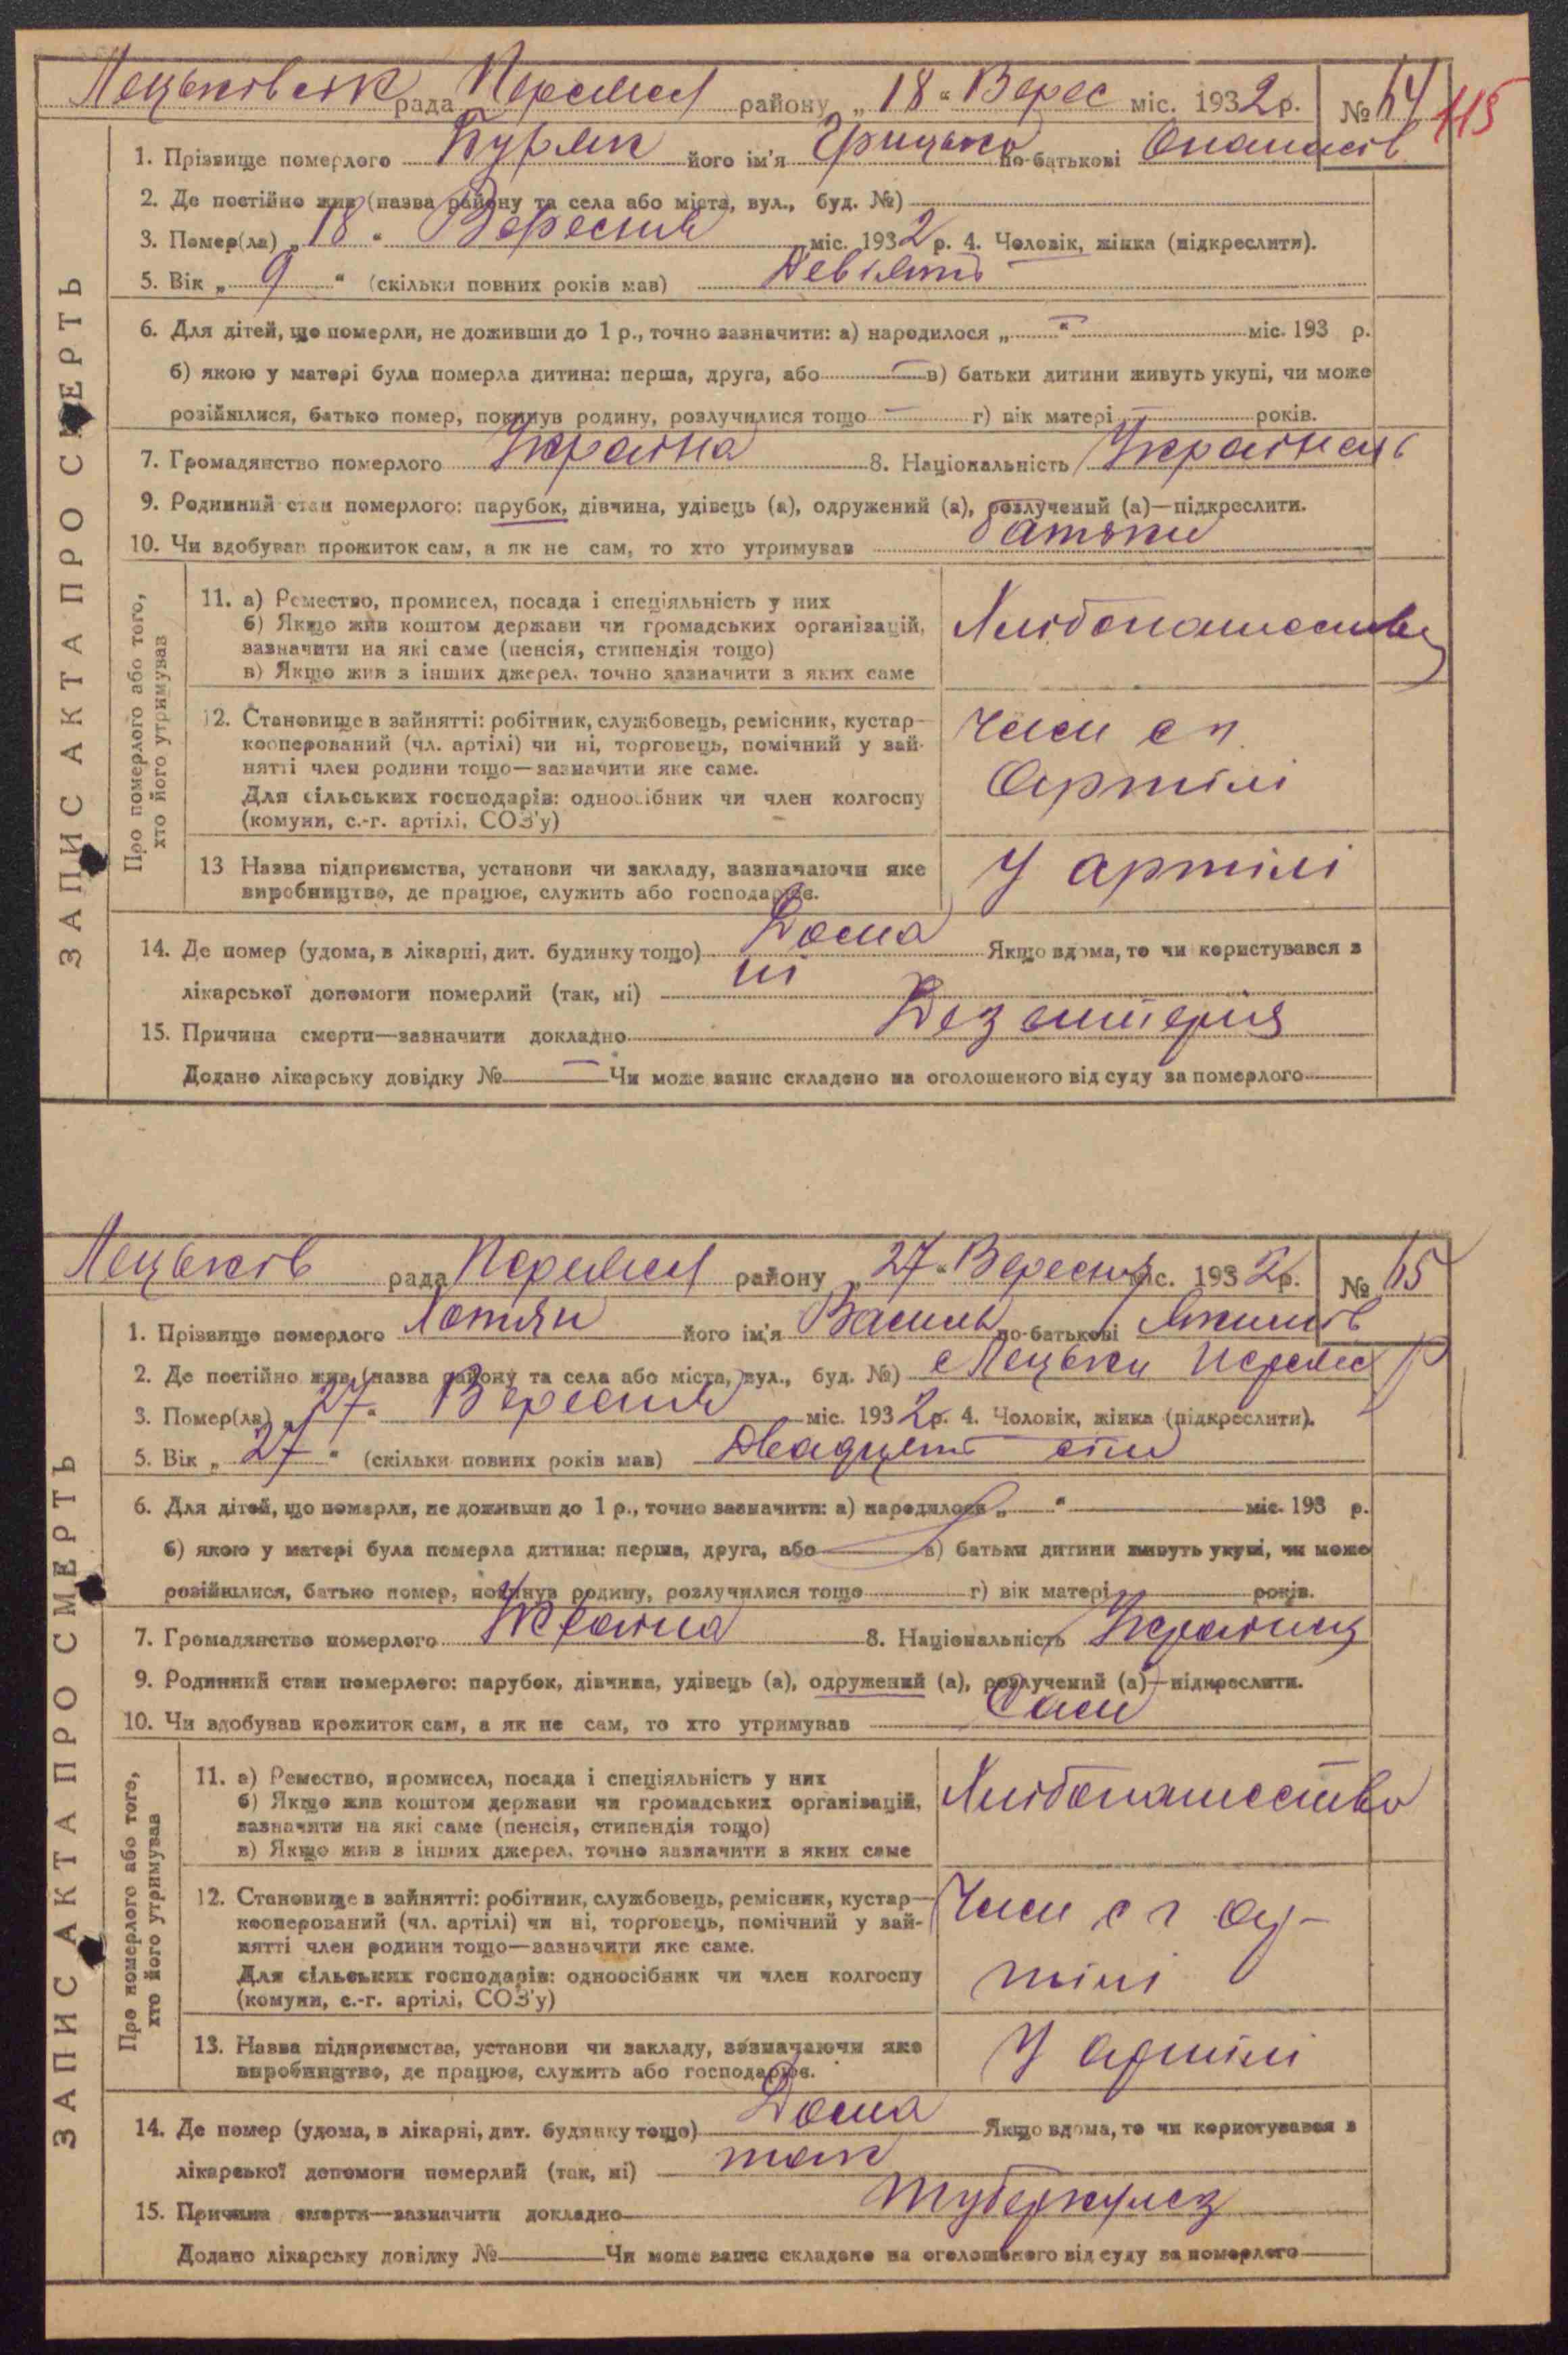 рада Переяслав району „18“ Верес міс. 1932 р. № 64 115
1. Прізвище померлого Буряк його ім'я Грицько по-батькові Опанасів
2. Де постійно жив (назва району та села або міста, вул., буд. №)
3. Помер(ла) „18“ Вересня міс. 1932 р. 4. Чоловік, жінка (підкреслити).
5. Вік „9“ (скільки повних років мав) Девіять
6. Для дітей, що померли, не доживши до 1 р., точно зазначити: а) народилося „—“ міс. 193 р.
б) якою у матері була померла дитина: перша, друга, або — в) батьки дитини живуть укупі, чи може
розійшлися, батько помер, покинув родину, розлучилися тощо — г) вік матері — років.
7. Громадянство померлого Україна 8. Національність
9. Родинний стан померлого: парубок, дівчина, удівець (а), одружений (а), розлучений (а)—підкреслити.
10. Чи вдобував прожиток сам, а як не сам, то хто утримував батьки
ЗАПИС АКТА ПРО СМЕРТЬ
Про померлого або того,
хто його утримував
11. а) Ремество, промисел, посада і спеціяльність у них
б) Якщо жив коштом держави чи громадських організацій,
зазначити на які саме (пенсія, стипендія тощо)
в) Якщо жив з інших джерел, точно зазначити з яких саме
Хлібопашество
12. Становище в зайнятті: робітник, службовець, ремісник, кустар—
кооперований (чл. артілі) чи ні, торговець, помічний у зай-
нятті член родини тощо—зазначити яке саме.
Для сільських господарів: одноосібник чи член колгоспу
(комуни, с.-г. артілі, СОЗ'у)
Член с г.
Артілі
13 Назва підприємства, установи чи закладу, зазначаючи яке
виробництво, де працює, служить або господарює.
У артілі
14. Де помер (удома, в лікарні, дит. будинку тощо) Дома Якщо вдома, то чи користувався з
лікарської допомоги померлий (так, ні) ні
15. Причина смерти—зазначити докладно Дезентерія
Додано лікарську довідку № — Чи може запис складено на оголошеного від суду за померлого
Лецьків рада Переяслав району „27“ Вересня міс. 1932 р. № 65
1. Прізвище померлого Лотян його ім'я Василь по-батькові
2. Де постійно жив (назва району та села або міста, вул., буд. №) с Лецьки Переяс р
3. Помер(ла) „27“ Вересня міс. 1932 р. 4. Чоловік, жінка (підкреслити).
5. Вік „27“ (скільки повних років мав) Двадцять сім
6. Для дітей, що померли, не доживши до 1 р., точно зазначити: а) народилося „ “ міс. 193 р.
б) якою у матері була померла дитина: перша, друга, або в) батьки дитини живуть укупі, чи може
розійшлися, батько помер, покинув родину, розлучилися тощо г) вік матері років.
7. Громадянство померлого Україна 8. Національність Українец
9. Родинний стан померлого: парубок, дівчина, удівець (а), одружений (а), розлучений (а)—підкреслити.
10. Чи вдобував прожиток сам, а як не сам, то хто утримував Сам
ЗАПИС АКТА ПРО СМЕРТЬ
Про померлого або того,
хто його утримував
11. а) Ремество, промисел, посада і спеціяльність у них
б) Якщо жив коштом держави чи громадських організацій,
зазначити на які саме (пенсія, стипендія тощо)
в) Якщо жив з інших джерел, точно зазначити з яких саме
Хлібопашество
12. Становище в зайнятті: робітник, службовець, ремісник, кустар—
кооперований (чл. артілі) чи ні, торговець, помічний у зай-
нятті член родини тощо—зазначити яке саме.
Для сільських господарів: одноосібник чи член колгоспу
(комуни, с.-г. артілі, СОЗ'у)
Член с г ар-
тілі
13. Назва підприємства, установи чи закладу, зазначаючи яке
виробництво, де працює, служить або господарює.
У артілі
14. Де помер (удома, в лікарні, дит. будинку тощо) Дома Якщо вдома, то чи користувався з
лікарської допомоги померлий (так, ні) так
15. Причина смерти—зазначити докладно туберкулез
Додано лікарську довідку № Чи може запис складено на оголошеного від суду за померлого